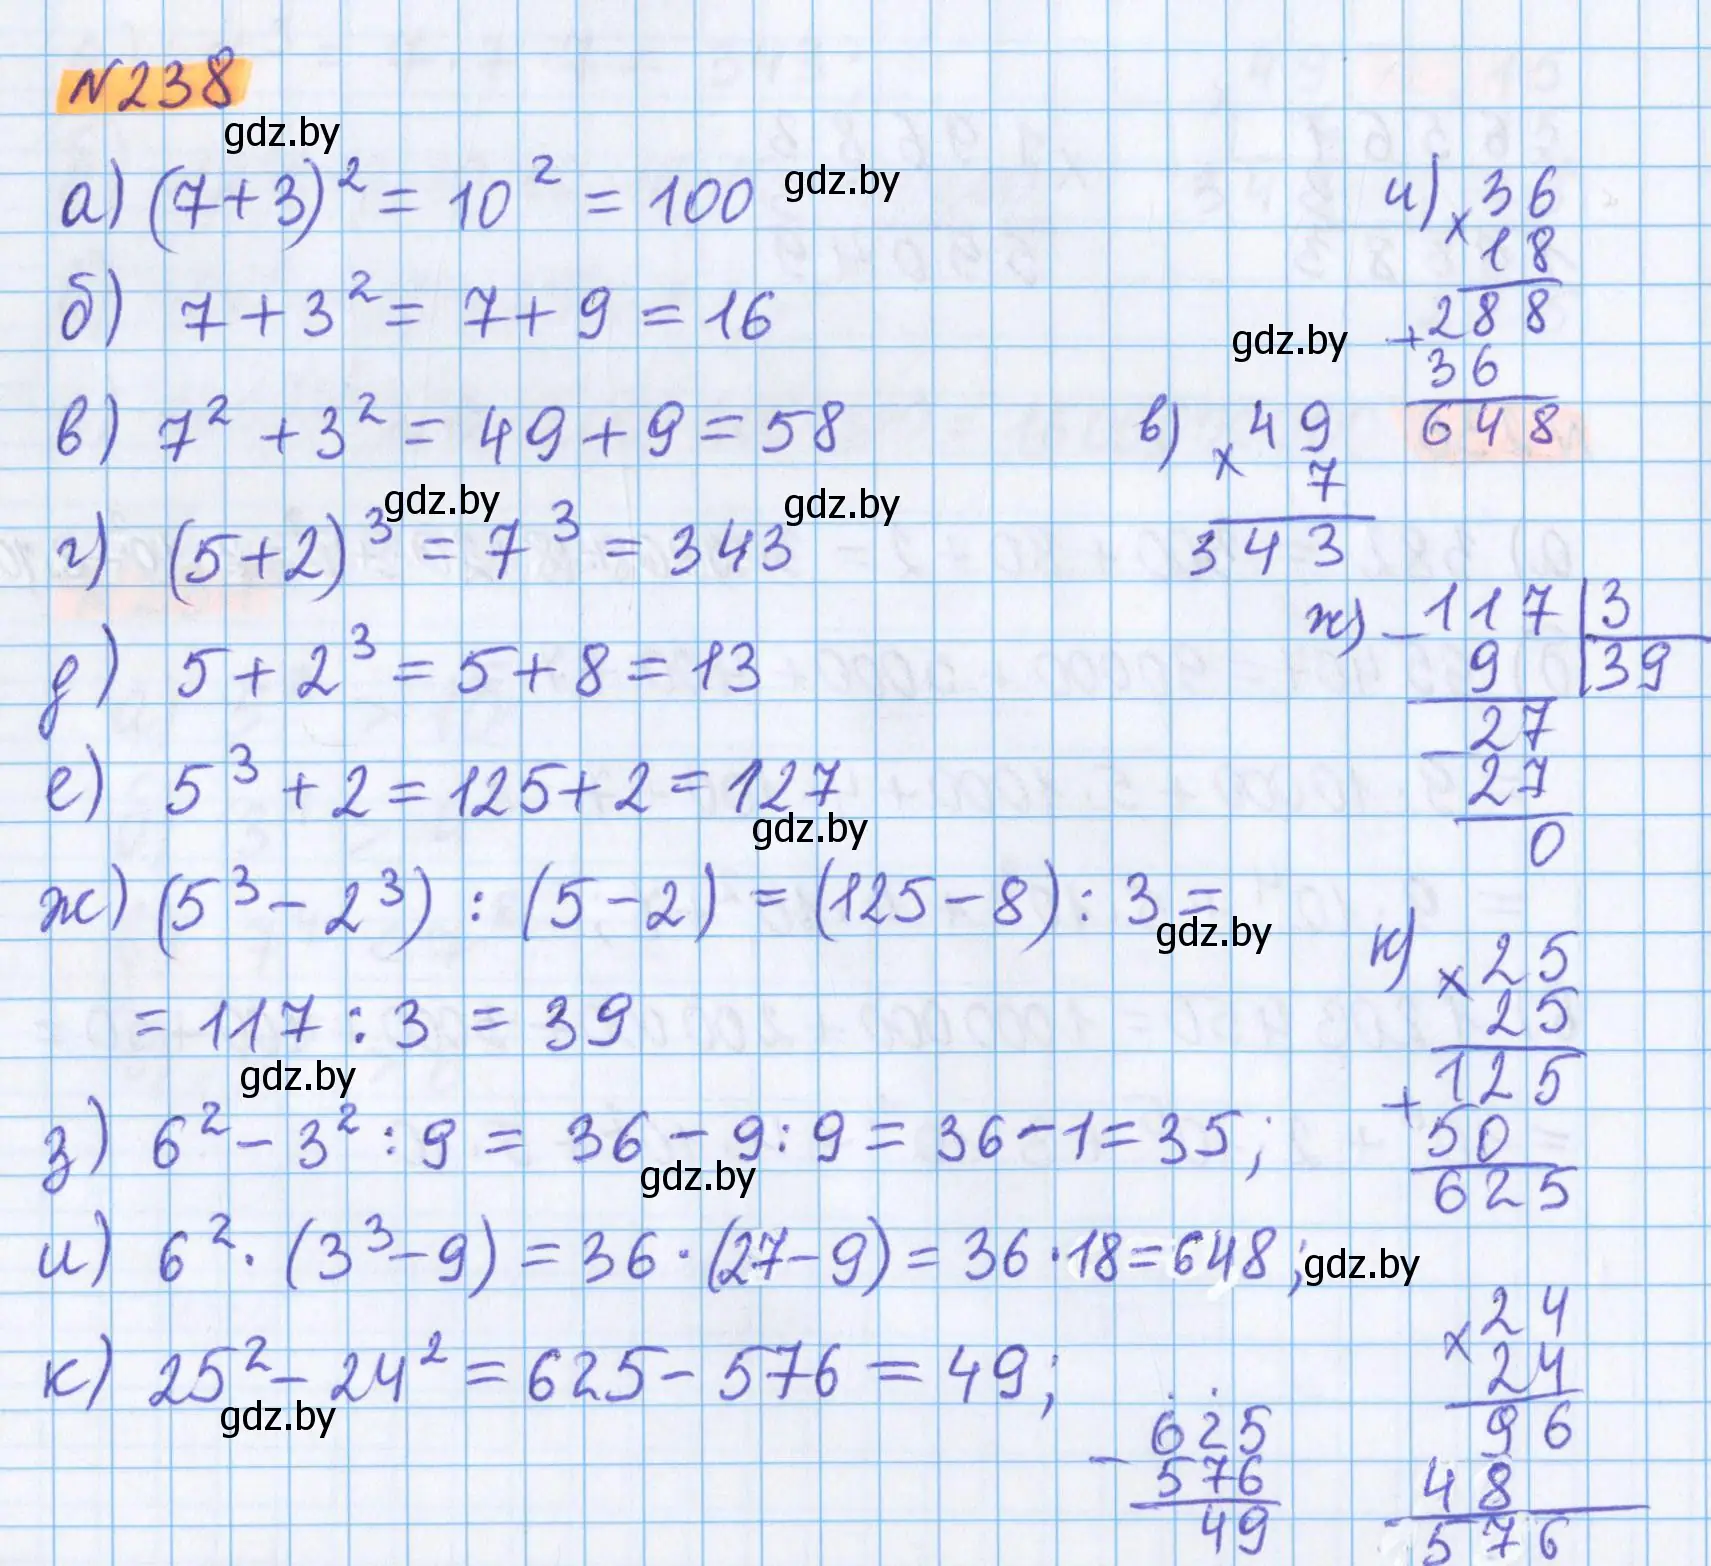 №238
gdz.by
а) (7+3)² = 10² = 100
gdz.by
б) 7+3² = 7+9 = 16
в) 7² +3² = 49+9 = 58
gdz.by
gdz.by
г) (5+2)³ = 7³ = 343
д) 5+2³ = 5+8 = 13
е) 5³ +2 = 125+2 = 127
gdz.by
ж) (5³ - 2³) : (5-2) = (125-8) : 3 =
gdz.by
= 117 : 3 = 39
gdz.by
з) 6² - 3² : 9 = 36 - 9 : 9 = 36 - 1 = 35;
gdz.by
и) 6² · (3³ - 9) = 36 · (27 - 9) = 36 · 18 = 648;
gdz.by
к) 25² - 24² = 625 - 576 = 49;
gdz.by
и) × 36
18
+ 288
36
648
gdz.by
в) × 49
7
343
ж) - 117 | 3
9 | 39
- 27
27
0
к) × 25
25
+ 125
50
625
× 24
24
96
48
576
- 625
576
49